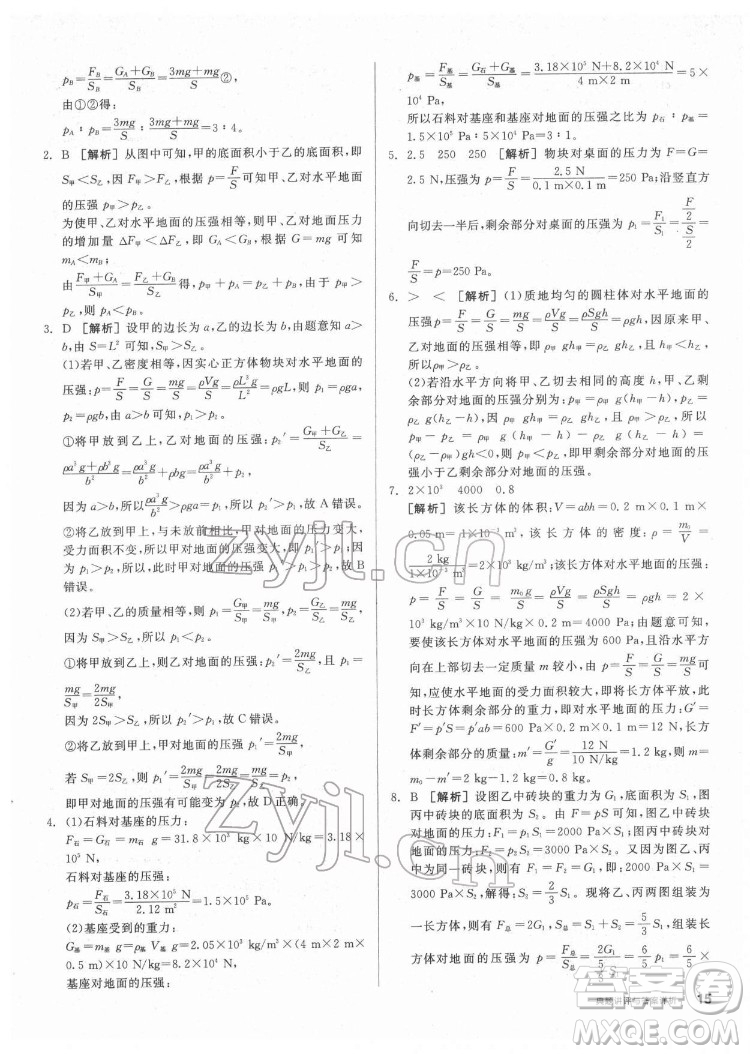 p_B = F_B/S = (G_A+G_B)/S = (3mg+mg)/S ②,
由①②得：
p_A : p_B = 3mg/S : (3mg+mg)/S = 3 : 4。
2. B [解析] 从图中可知，甲的底面积小于乙的底面积，即
S甲<S乙，因为 F甲=F乙，根据 p=F/S 可知，对水平地面
的压强 p甲>p乙。
为使甲、乙对水平地面的压强相等，则甲、乙对地面压力
的增加量 ΔF甲<ΔF乙，即 G_A<G_B，根据 G=mg 可知
m_A<m_B；
由 (F甲+G_A)/S甲 = (F乙+G_B)/S乙 求得，由于 S甲<S乙，所以 p甲>
p乙，选项 B 正确。
3. D [解析] 设甲的边长为 a，乙的边长为 b，由题意知 a>
b，由 S=L² 可知，S甲>S乙。
(1)若甲、乙密度相等，因实心正方体物块对水平地面的
压强：p=F/S=G/S=mg/S=ρVg/S=ρL³g/L²=ρgL，则 p₁=ρga，
p₂=ρgb，由 a>b 可知，p₁>p₂。
①将甲放到乙上，乙对地面的压强：p₂′=(G甲+G乙)/S乙=
(ρa³g+ρb³g)/b²=ρa³g/b²+ρgb，
因为 ρa³g/b²>ρga=p₁，所以 p₂′>p₁，故 A 错误。
②将乙放到甲上，与未放前相比，甲对地面的压力变大，
受力面积不变，所以甲对地面的压强变大，即 p₁′>p₁，
因为 p₁>p₂，所以，此时甲对地面的压强 p₁′>p₂，故 B
错误。
(2)若甲、乙的质量相等，则 p₁=G甲/S甲=mg/S甲，p₂=G乙/S乙=mg/S乙，
因为 S甲>S乙，所以 p₁<p₂。
①将甲放到乙上，乙对地面的压强：p₂′=(G甲+G乙)/S乙=
(mg+mg)/S乙=2mg/S乙，
因为 2S甲>S乙，所以 p₂′>p₁，故 C 错误。
②将乙放到甲上，甲对地面的压强 p₁′=(G甲+G乙)/S甲=2mg/S甲，
若 S甲=2S乙，则 p₁′=2mg/S甲=2mg/2S乙=mg/S乙=p₂，
即甲对地面的压强有可能变为 p₂，故 D正确。
4. (1)石料对基座的压力：
F石=G石=m石 g=31.8×10³ kg×10 N/kg=3.18×
10⁵ N，
石料对基座的压强：
p石=F石/S石=3.18×10⁵ N/2.12 m²=1.5×10⁵ Pa。
(2)基座受到的重力：
G基=m基 g=2.05×10³ kg/m³×4 m³×10 N/kg=8.2×10⁴ N，
基座对地面的压强：
p基=F基/S基=(G石+G基)/S基=(3.18×10⁵ N+8.2×10⁴ N)/(4 m×2 m)=5×
10⁴ Pa，
所以石料对基座和基座对地面的压强之比为 p石：p基=
1.5×10⁵ Pa：5×10⁴ Pa=3：1。
5. 2.5 250 250 [解析] 物块对桌面的压力为 F=G=
2.5 N，压强为 p=F/S=2.5 N/(0.1 m×0.1 m)=250 Pa；沿竖直方
向切去一半后，剩余部分对桌面的压强 p₁=F₁/S₁=(F/2)/(S/2)=
F/S=p=250 Pa。
6. > < [解析] (1)质地均匀的圆柱体对水平地面的
压强p=F/S=G/S=mg/S=ρVg/S=ρShg/S=ρgh，因为h甲<
h乙，p甲=p乙，所以 ρ甲>ρ乙。
(2)若沿水平方向将甲、乙切去相同的高度 h，甲、乙剩
余部分对地面的压强分别为：p甲=ρ甲 g(h甲－h)，p乙=
ρ乙 g(h乙－h)，因为ρ甲 gh甲=ρ乙 gh乙，ρ甲>ρ乙，所以
p甲－p乙=ρ甲 g(h甲－h)－ρ乙 g(h乙－h)=
(ρ乙－ρ甲)gh<0，所以 p甲<p乙，即甲剩余部分对地面的压
强小于乙剩余部分对地面的压强。
7. 2×10³ 4000 0.8
[解析] 该长方体的体积：V=abh=0.2 m×0.1 m×
0.05 m=1×10⁻³ m³，该长方体的密度：ρ=m₀/V=
2 kg/(1×10⁻³ m³)=2×10³ kg/m³；该长方体对水平地面的压强：
p=F/S=G/S=m₀g/S=ρVg/S=ρSgh/S=ρgh=2×
10³ kg/m³×10 N/kg×0.2 m=4000 Pa；由题意可知，
要使该长方体对水平地面的压强为 600 Pa，且沿水平方向
在上部切去一块质量 m 较小，由 p=F/S=G/S=mg/S 可
知，应使水平地面的受力面积较大，即将长方体平放，此
时长方体剩余部分的重力，即对水平地面的压力：G′=
F′=p′S=p′ab=600 Pa×0.2 m×0.1 m=12 N，长方
体剩余部分的质量：m′=G′/g=12 N/(10 N/kg)=1.2 kg，则 m=
m₀－m′=2 kg－1.2 kg=0.8 kg。
8. B [解析] 设图乙中砖块的重力为 G₁，底面积为 S₁，图
丙中砖块的底面积为 S₂；由 p=F/S 可知，图乙中砖块对
水平地面的压力 F₁=p₁S₁=2000 Pa×S₁；图丙中砖块
对水平地面的压力 F₂=p₂S₂=3000 Pa×S₂；由于两块
砖完全相同，则有 F₁=F₂，即 2000 Pa×S₁=
3000 Pa×S₂，则 S₂=2/3 S₁。将乙、丙两图组装为
一长方体，则有 F总=2G₁，S总=S₁+S₂=5/3 S₁，该长
方体对地面的压强为：p=F总/S总=2G₁/(5/3 S₁)=6/5 p₁=6/5×
zyjl.cn
zyjl.cn
答案圈
MXQE.COM
15